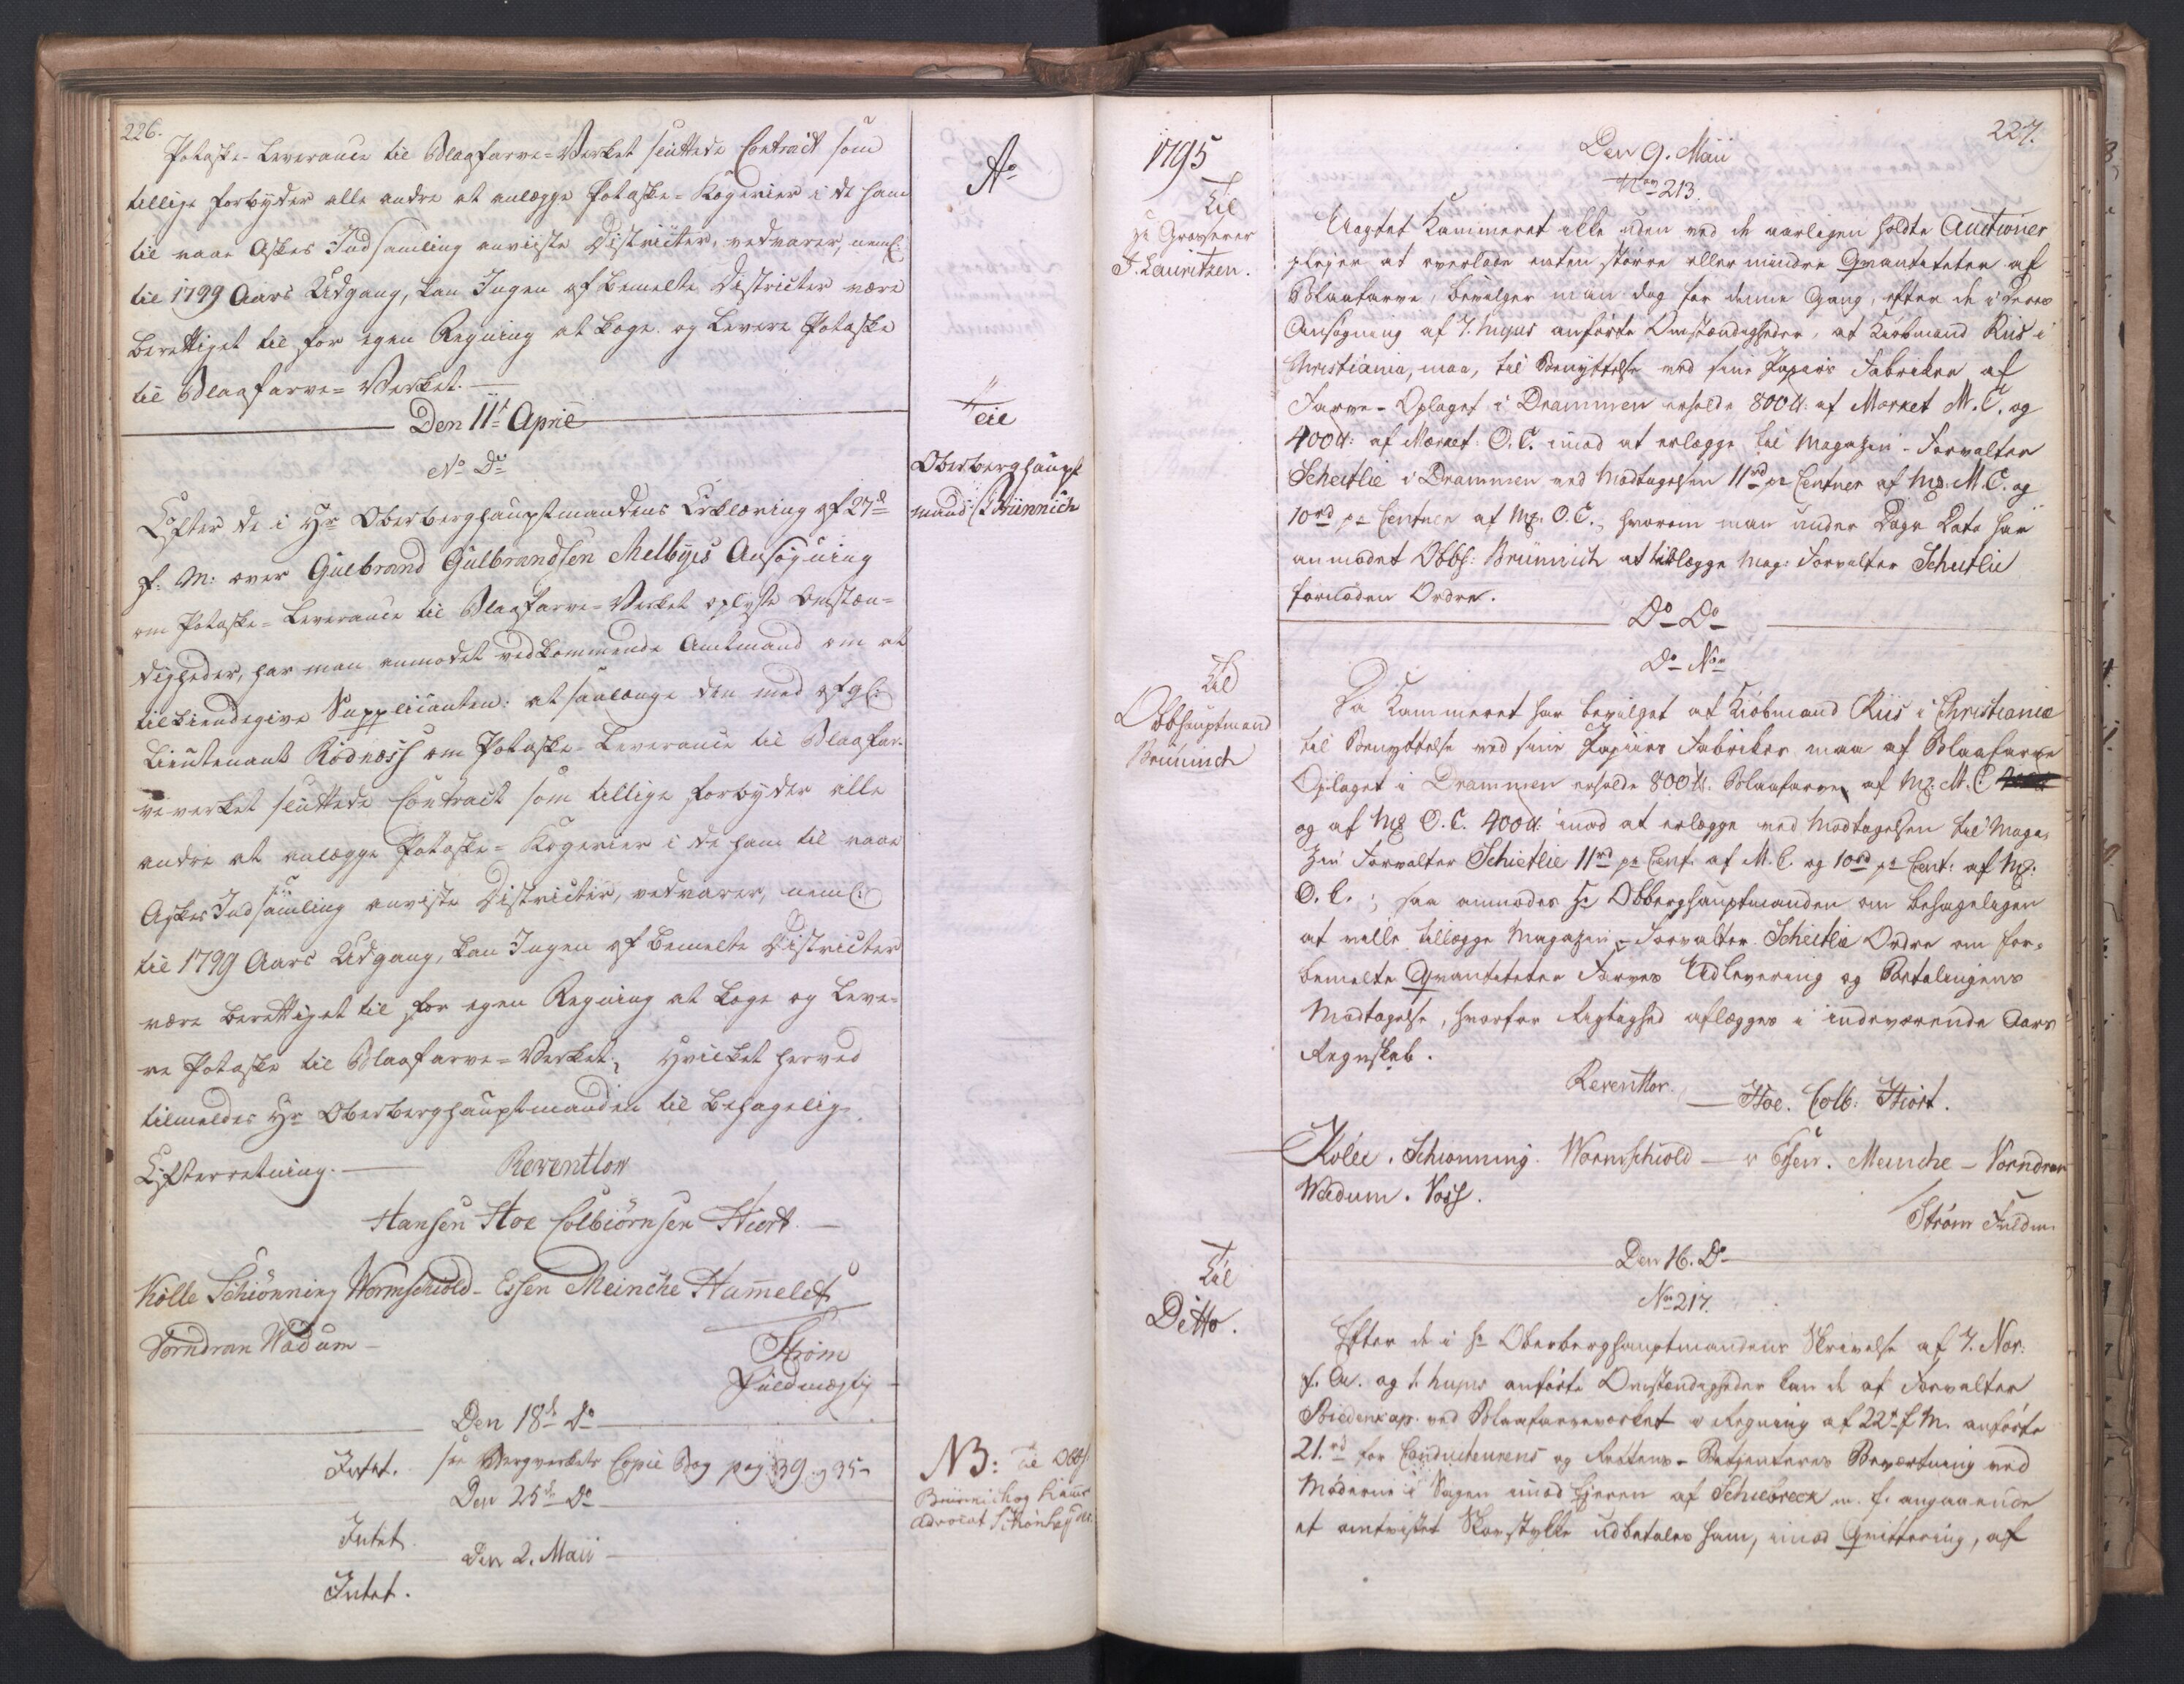 226.
Potaske-Leverance til Blaafarve-Verket sluttede Contract som
tillige forbyder alle andre at anlægge Potaske-Kogerier i de ham
til raae Askes Indsamling anviiste Districter, vedvarer, neml:
til 1799 Aars Udgang, kan Ingen af bemelte Districter være
berettiget til for egen Regning at koge og levere Potaske
til Blaafarve-Verket.
Den 11t April
No Do
Efter de i Hr Oberberghauptmandens Erklæring af 27d
f: M: over Gulbrand Gulbrandsen Melbyes Ansøgning
om Potaske-Leverance til Blaafarve-Verket oplyste Omstæn-
digheder, har man anmodet vedkommende Amtmand om at
tilkiendegive Supplicanten: at saalænge den med afg:
Lieutenant Rødness om Potaske-Leverance til Blaafar-
veverket sluttede Contract som tillige forbyder alle
andre at anlægge Potaske-Kogerier i de ham til raae
Askes Indsamling anviste Districter, vedvarer, neml:
til 1799 Aars Udgang, kan Ingen af bemelte Districter
være berettiget til for egen Regning at koge og leve-
re Potaske til Blaafarve-Verket; Hvilket herved
tilmeldes Hr Oberberghauptmanden til behagelig
Efterretning. Reventlow
Hansen Hoe Colbiørnsen Hiort
Kølle Schiønning Wormskiold - Essen Meinche Hameleff
Vorndran Wadum
Strøm
Fuldmægtig
Den 18d Do
Intet. see Bergverkets Copie Bog pag: 39. 95
Den 25d Do
Intet
Den 2. Maii
Intet.
Ao
Til
Oberberghaupt
mand Brünnich
NB: til Obb.
Brünnich og Kamr
Advocat Schønheyder
1795
Til
Hr Grosserer
J. Lauritzen.
Til
Obbhauptmand
Brünnich
Til
Ditto.
227.
Den 9. Maii
No 213.
Uagtet Kammeret ikke uden ved de aarligen holdte Auctioner
plejer at overlade enten større eller mindre Qvantiteter af
Blaafarve, bevilger man dog for denne Gang, efter de i Deres
Ansøgning af 7. hujus anførte Omstændigheder, at Kiøbmand Riis i
Christiania, maa, til Benyttelse ved sine Papiirs Fabriker af
Farve-Oplaget i Drammen erholde 800 ℔: af Market M.C. og
400 ℔: af Mærket: O.C. imod at erlægge til Magazin-Forvalter
Scheitlie i Drammen ved Modtagelsen 11rd pr Centner af Mz: M.C. og
10rd pr Centner af Mz: O.C., hvorom man under Dags Dato har
anmodet Obbh: Brünnich at tillægge Mag: Forvalter Scheitlie
fornøden Ordre.
Do Do
Do No
Da Kammeret har bevilget at Kiøbmand Riis i Christiania
til Benyttelse ved sine Papiirs Fabriker maa af Blaafarve
Oplaget i Drammen erholde 800 ℔. Blaafarve af Mz: M.C.
og af Mz O.C. 400 ℔: imod at erlægge ved Modtagelsen til Maga-
zin Forvalter Schietlie 11rd pr Cent: af M.C. og 10rd pr Cent: af Mz:
O.C.; saa anmodes Hr Obberghauptmanden om behageligen
at ville tillægge Magazin-Forvalter Scheitlie Ordre om for-
bemelte Qvantiteter Farves Udlevering og Betalingens
Modtagelse, hvorfor Rigtighed aflægges i indeværende Aars
Regnskab.
Reventlov.
Hoe. Colb: Hiort.
Kölle. Schiønning. Wormschiold - v Essen. Meinche - Vorndran
Wadum. Voss.
Strøm Fuldm.
Den 16. Do
No 217.
Efter de i Hr Oberberghauptmandens Skrivelse af 7. Nov:
f. A. og 1. hujus anførte Omstændigheder kan de af Forvalter
Biedenkap. ved Blaafarveverket i Regning af 22d f M. anførte
21.rd for Conducteurens og Rettens-Betjenteres Bevertning ved
Møderne i Sagen imod Ejeren af Schiøreck m. f. angaaende
et omtvistet Skovstykke udbetales ham, imod Qvittering, af